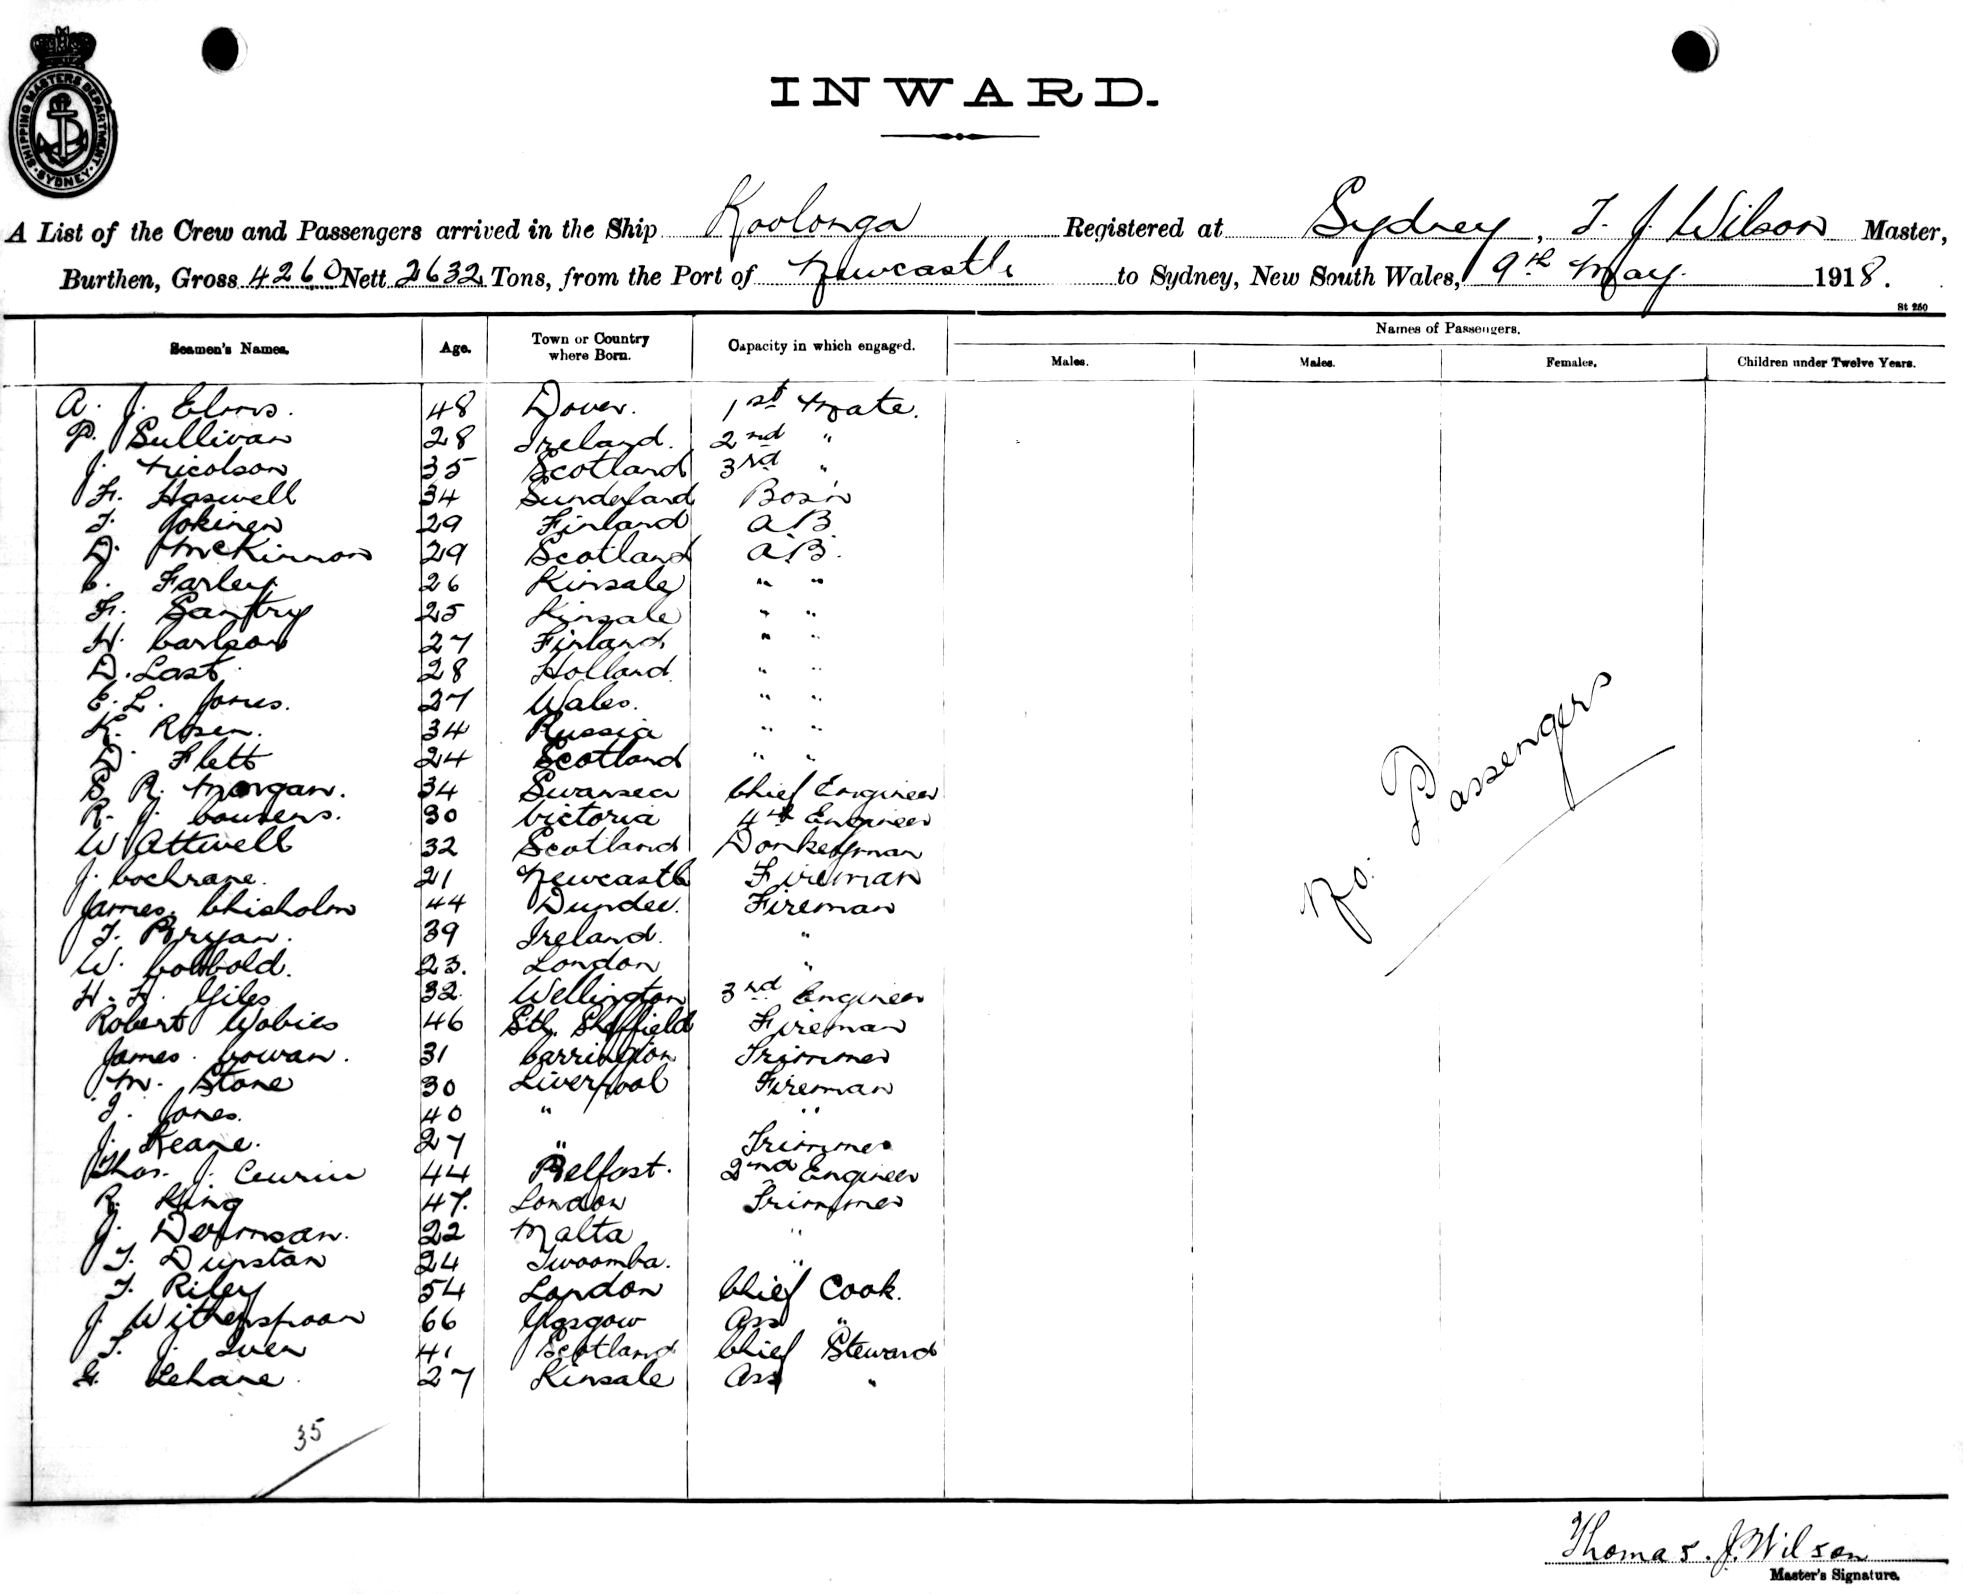 SHIPPING MASTERS DEPARTMENT
SYDNEY
INWARD.
A List of the Crew and Passengers arrived in the Ship Koolonga Registered at Sydney, T. J. Wilson Master,
Burthen, Gross 4260 Nett 2632 Tons, from the Port of Newcastle to Sydney, New South Wales, 9th May. 1918.
St 250
Seamen's Names. Age. Town or Country where Born. Capacity in which engaged. Names of Passengers.
Males. Males. Females. Children under Twelve Years.
A. J. Elms. 48 Dover. 1st Mate.
P. Sullivan 28 Ireland. 2nd "
J. Nicolson 35 Scotland 3rd "
F. Haswell 34 Sunderland Bos'n
T. Jokinen 29 Finland A B
D. McKinnon 29 Scotland A.B.
C. Farley 26 Kinsale " "
F. Santry 25 Kinsale " "
H. Carlson 27 Finland " "
D. Last 28 Holland " "
E. L. Jones. 27 Wales. " "
K. Rosen. 34 Russia " "
D. Flett 24 Scotland " "
S. R. Morgan. 34 Swansea Chief Engineer
R. J. Couzens. 30 Victoria 4th Engineer
W Attwell 32 Scotland Donkeyman
J. Cochrane. 21 Newcastle Fireman
James Chisholm 44 Dundee. Fireman
T. Bryan. 39 Ireland. "
W. Cobbold. 23. London "
H. H. Giles 32 Wellington 3rd Engineer
Robert 46 Sth. Sheffield Fireman
James Cowan. 31 Carrington Trimmer
M. Stone 30 Liverpool Fireman
T. Jones. 40 " "
J. Keane. 27 " Trimmer
Thos. J. 44 Belfast. 2nd Engineer
R. King 47. London Trimmer
J. 22 Malta "
T. Dunstan 24 Twoomba. "
T. Riley 54 London Chief Cook.
J. Witherspoon 66 Glasgow Ass "
T. J. 41 Scotland Chief Steward
G. Lehane. 27 Kinsale Ass "
No. Passengers
35
Thomas. J. Wilson
Master's Signature.